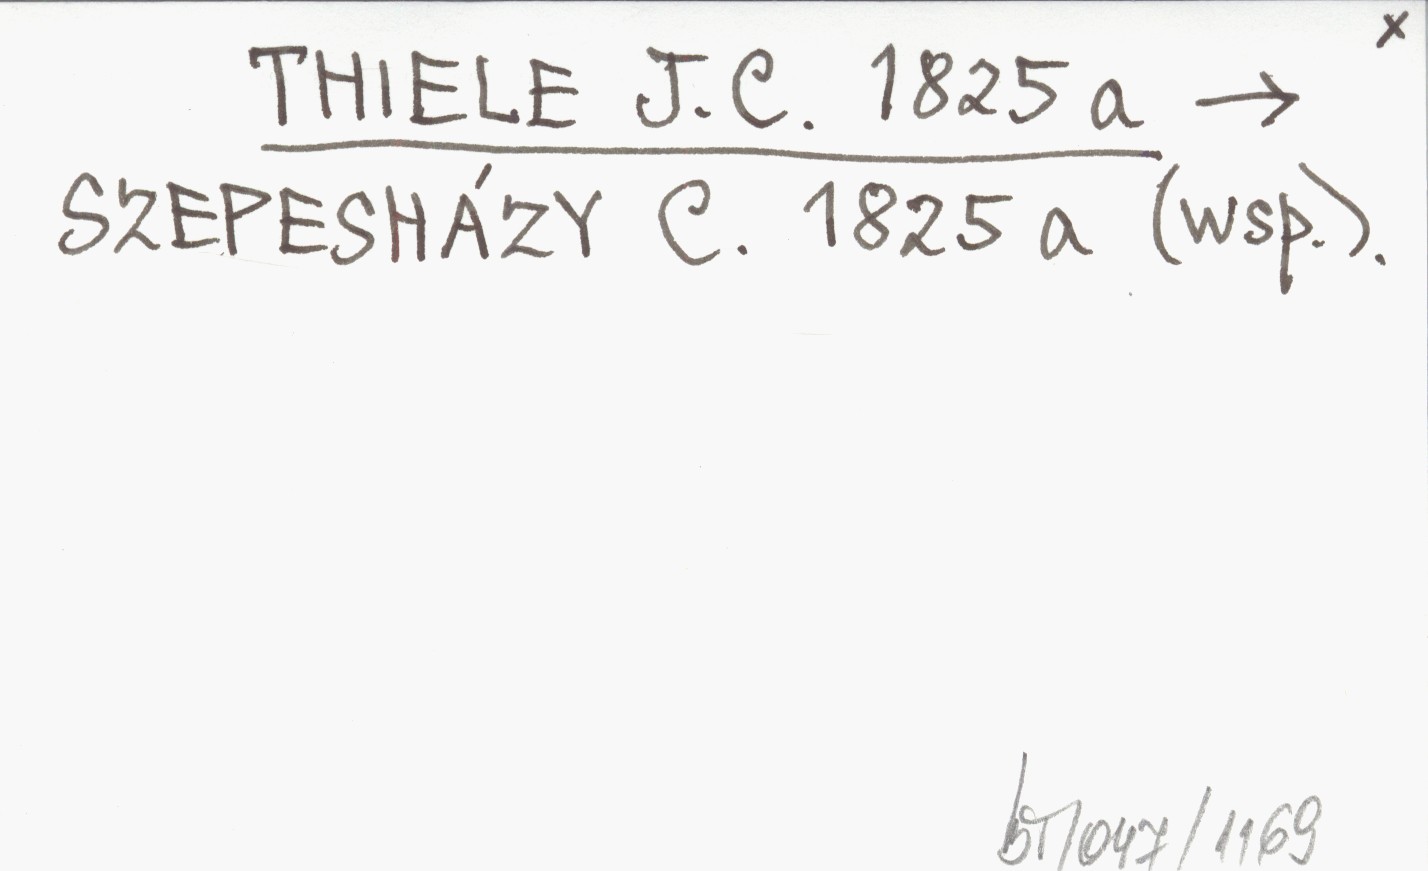 x
THIELE J.C. 1825 a →
SZEPESHÁZY C. 1825 a (wsp.).
bT/047/1169